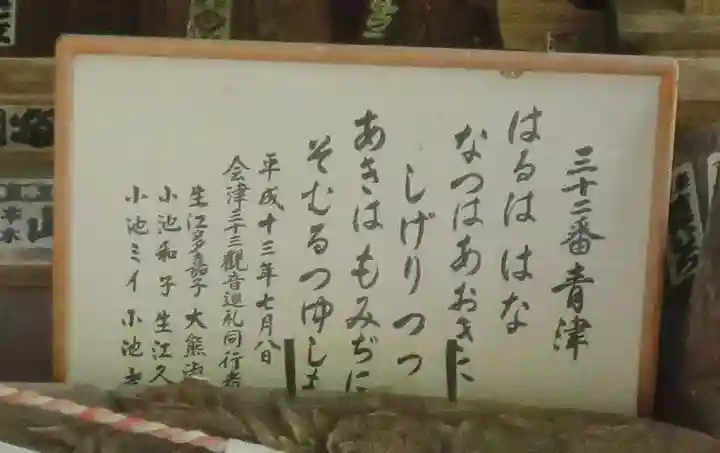 三十二番青津
はるは はな
なつはあおきに
しげりつつ
あきはもみぢに
そむるつゆしも
平成十三年七月八日
会津三十三觀音巡礼同行者
生江多嘉子 大熊
小池和子 生江久
小池ミイ 小池